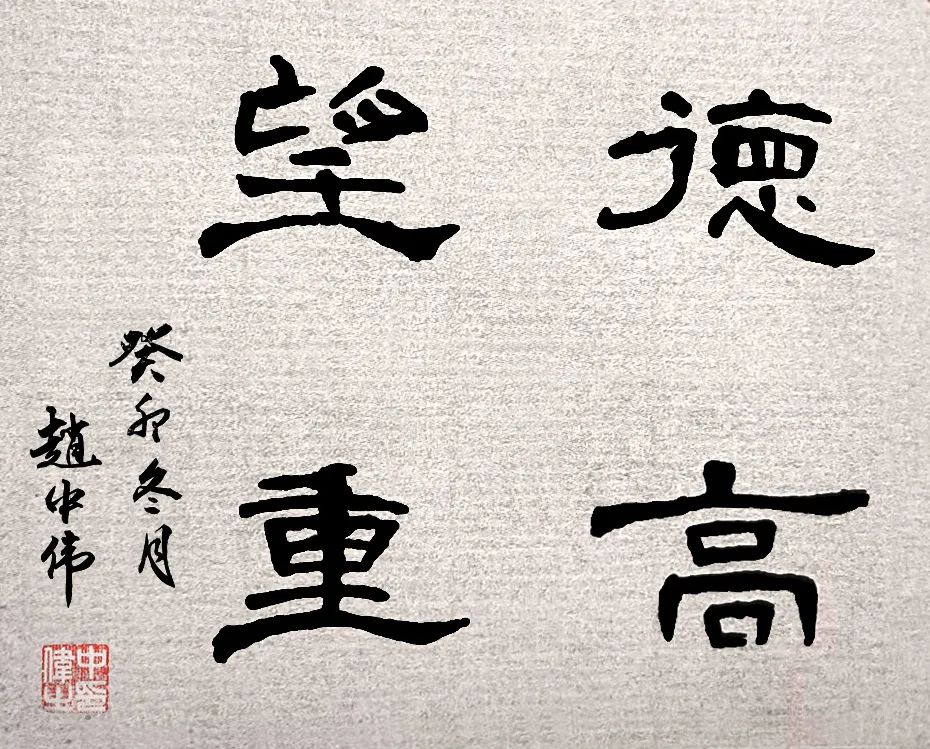 德高
望重
癸卯冬月
趙中伟